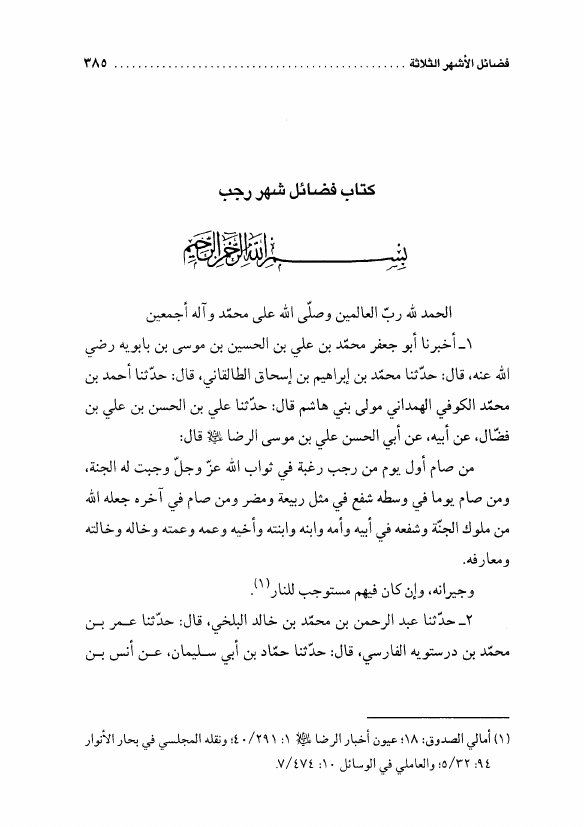 فضائل الأشهر الثلاثة ................................................ ٣٨٥
كتاب فضائل شهر رجب
بسم الله الرحمن الرحيم
الحمد لله ربّ العالمين وصلّى الله على محمّد وآله أجمعين
١ـ أخبرنا أبو جعفر محمّد بن علي بن الحسين بن موسى بن بابويه رضي
الله عنه، قال: حدّثنا محمّد بن إبراهيم بن إسحاق الطالقاني، قال: حدّثنا أحمد بن
محمّد الكوفي الهمداني مولى بني هاشم قال: حدّثنا علي بن الحسن بن علي بن
فضّال، عن أبيه، عن أبي الحسن علي بن موسى الرضا عليه السلام قال:
من صام أول يوم من رجب رغبة في ثواب الله عزّ وجلّ وجبت له الجنة،
ومن صام يوما في وسطه شفع في مثل ربيعة ومضر ومن صام في آخره جعله الله
من ملوك الجنّة وشفعه في أبيه وأمه وابنه وابنته وأخيه وعمه وعمته وخاله وخالته
ومعارفه.
وجيرانه، وإن كان فيهم مستوجب للنار(١).
٢ـ حدّثنا عبد الرحمن بن محمّد بن خالد البلخي، قال: حدّثنا عمر بن
محمّد بن درستويه الفارسي، قال: حدّثنا حمّاد بن أبي سليمان، عن أنس بن
(١) أمالي الصدوق: ١٨؛ عيون أخبار الرضا عليه السلام ١: ٤٠/٢٩١؛ ونقله المجلسي في بحار الأنوار
٩٤: ٥/٣٢؛ والعاملي في الوسائل ١٠: ٧/٤٧٤.